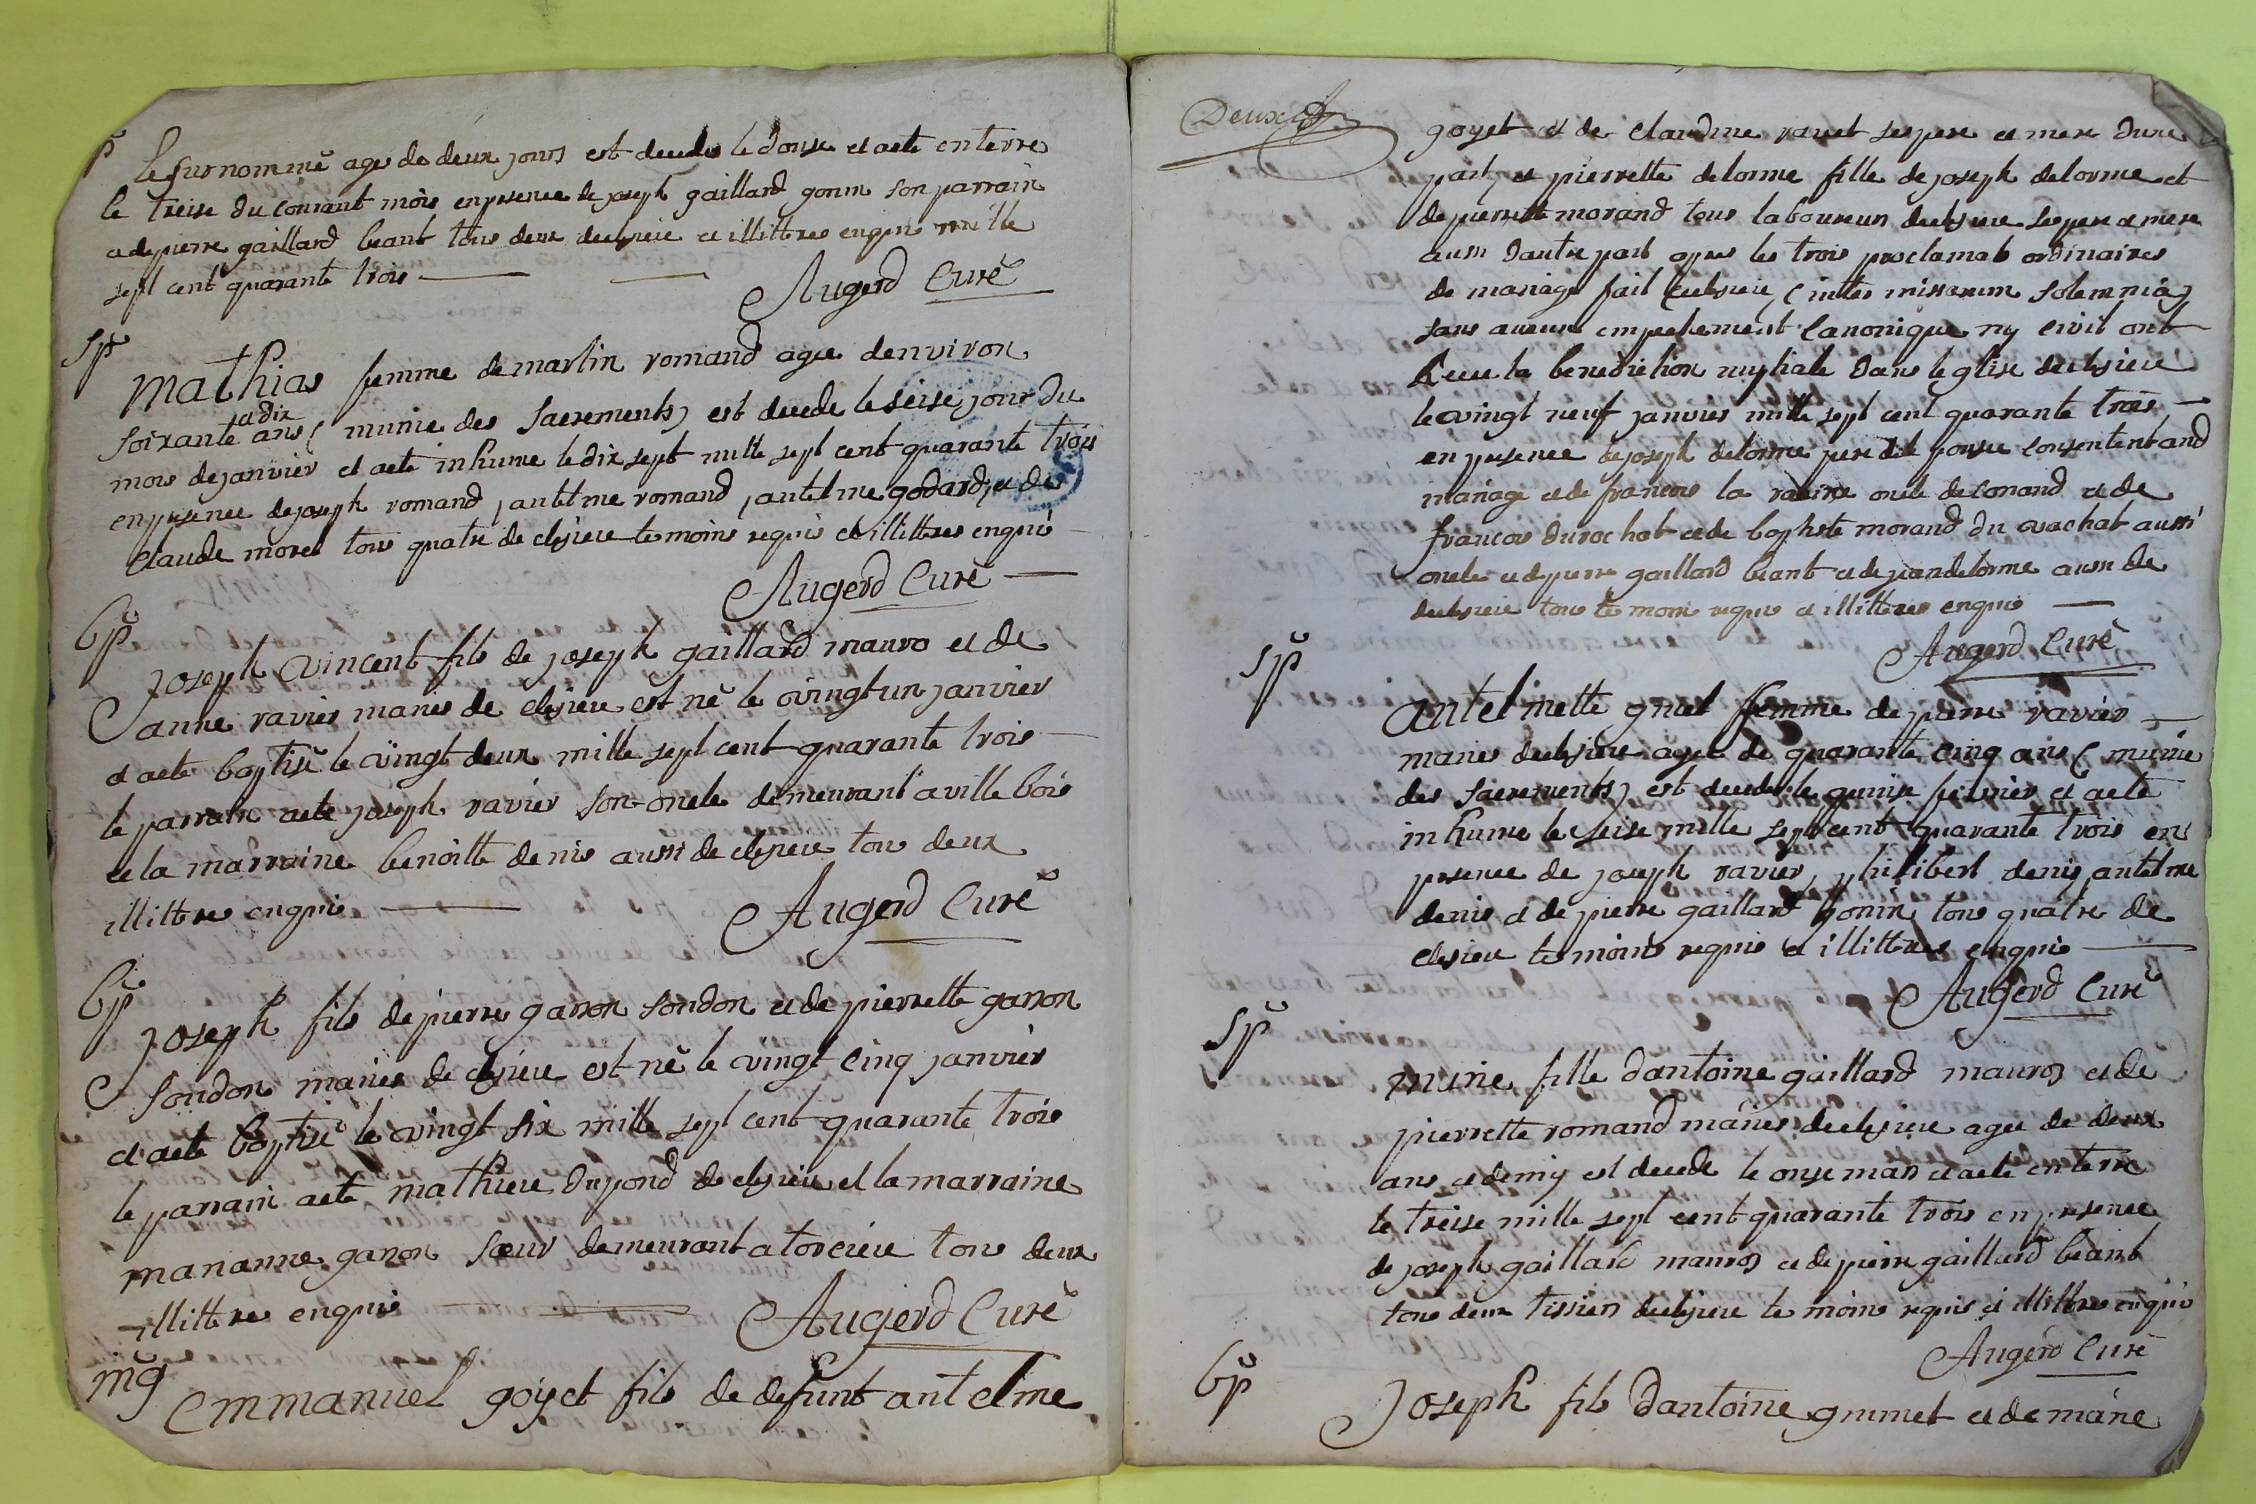 p̃ le surnommé agé de deux jours est decedé le douse et a eté enterré
le treise du courant mois en presence de joseph gaillard gonin son parrain
et de pierre gaillard béant tous deux de clesieu et illittres enquis mille
sept cent quarante trois
Augerd Curé
sp̃
mathias femme de martin romand agée denviron
soixante et dix ans (munie des sacrements) est decedé le seise jour du
mois de janvier et a eté inhumé le dix sept mille sept cent quarante trois
en presence de joseph romand, antelme romand, antelme godard, et de
claude morel tous quatre de clesieu temoins requis et illittres enquis
Augerd Curé
bp̃
joseph vincent fils de joseph gaillard mauro et de
anne ravier mariés de clesieu est né le vingt un janvier
et a eté baptisé le vingt deux mille sept cent quarante trois
le parrain a eté joseph ravier son oncle demeurant a ville bois
et la marraine benoitte denis aussi de clesieu tous deux
illittres enquis
Augerd Curé
bp̃
joseph fils de pierre garron sondon et de pierrette garron
sondon mariés de clesieu est né le vingt cinq janvier
et a eté baptisé le vingt six mille sept cent quarante trois
le parrain a eté mathieu dupond de clesieu et la marraine
marianne garron sœur demeurant a torcieu tous deux
illittres enquis
Augerd Curé
mg̃
emmanuel goyet fils de defunt antelme
Deux
goyet et de claudine ravet ses pere et mere dune
part, et pierrette delorme fille de joseph delorme et
de pierrette morand tous laboureurs de clesieu ses pere et mere
aussi dautre part apres les trois proclamat ordinaires
de mariage fait a clesieu (inter missarum solemnia)
sans aucun empechement canonique ny civil ont
receu la benediction nuptiale dans leglise de clesieu
le vingt neuf janvier mille sept cent quarante trois
en presence de joseph delorme pere de l'epouse consentent aud
mariage et de francois la racine oncle de conand et de
francois durochat et de baptiste morand du vachat aussi
oncle et de pierre gaillard béant et de jean delorme aussi de
de clesieu tous temoins requis et illittres enquis
Augerd Curé
sp̃
antelmette gruel femme de pierre ravier
mariés de clesieu agée de quarante cinq ans (munie
des sacrements) est decedé le quinse fevrier et a eté
inhumé le seise mille sept cent quarante trois en
presence de joseph ravier, philibert denis, antelme
denis et de pierre gaillard gonin tous quatre de
clesieu temoins requis et illittres enquis
Augerd Curé
sp̃
marie fille dantoine gaillard mauros et de
pierrette romand mariés de clesieu agée de deux
ans et demy est decedé le onse mars et a eté enterré
le treise mille sept cent quarante trois en presence
de joseph gaillard mauros et de pierre gaillard béant
tous deux tissiers de clesieu temoins requis et illittres enquis
Augerd Curé
bp̃
joseph fils dantoine grumet et de marie